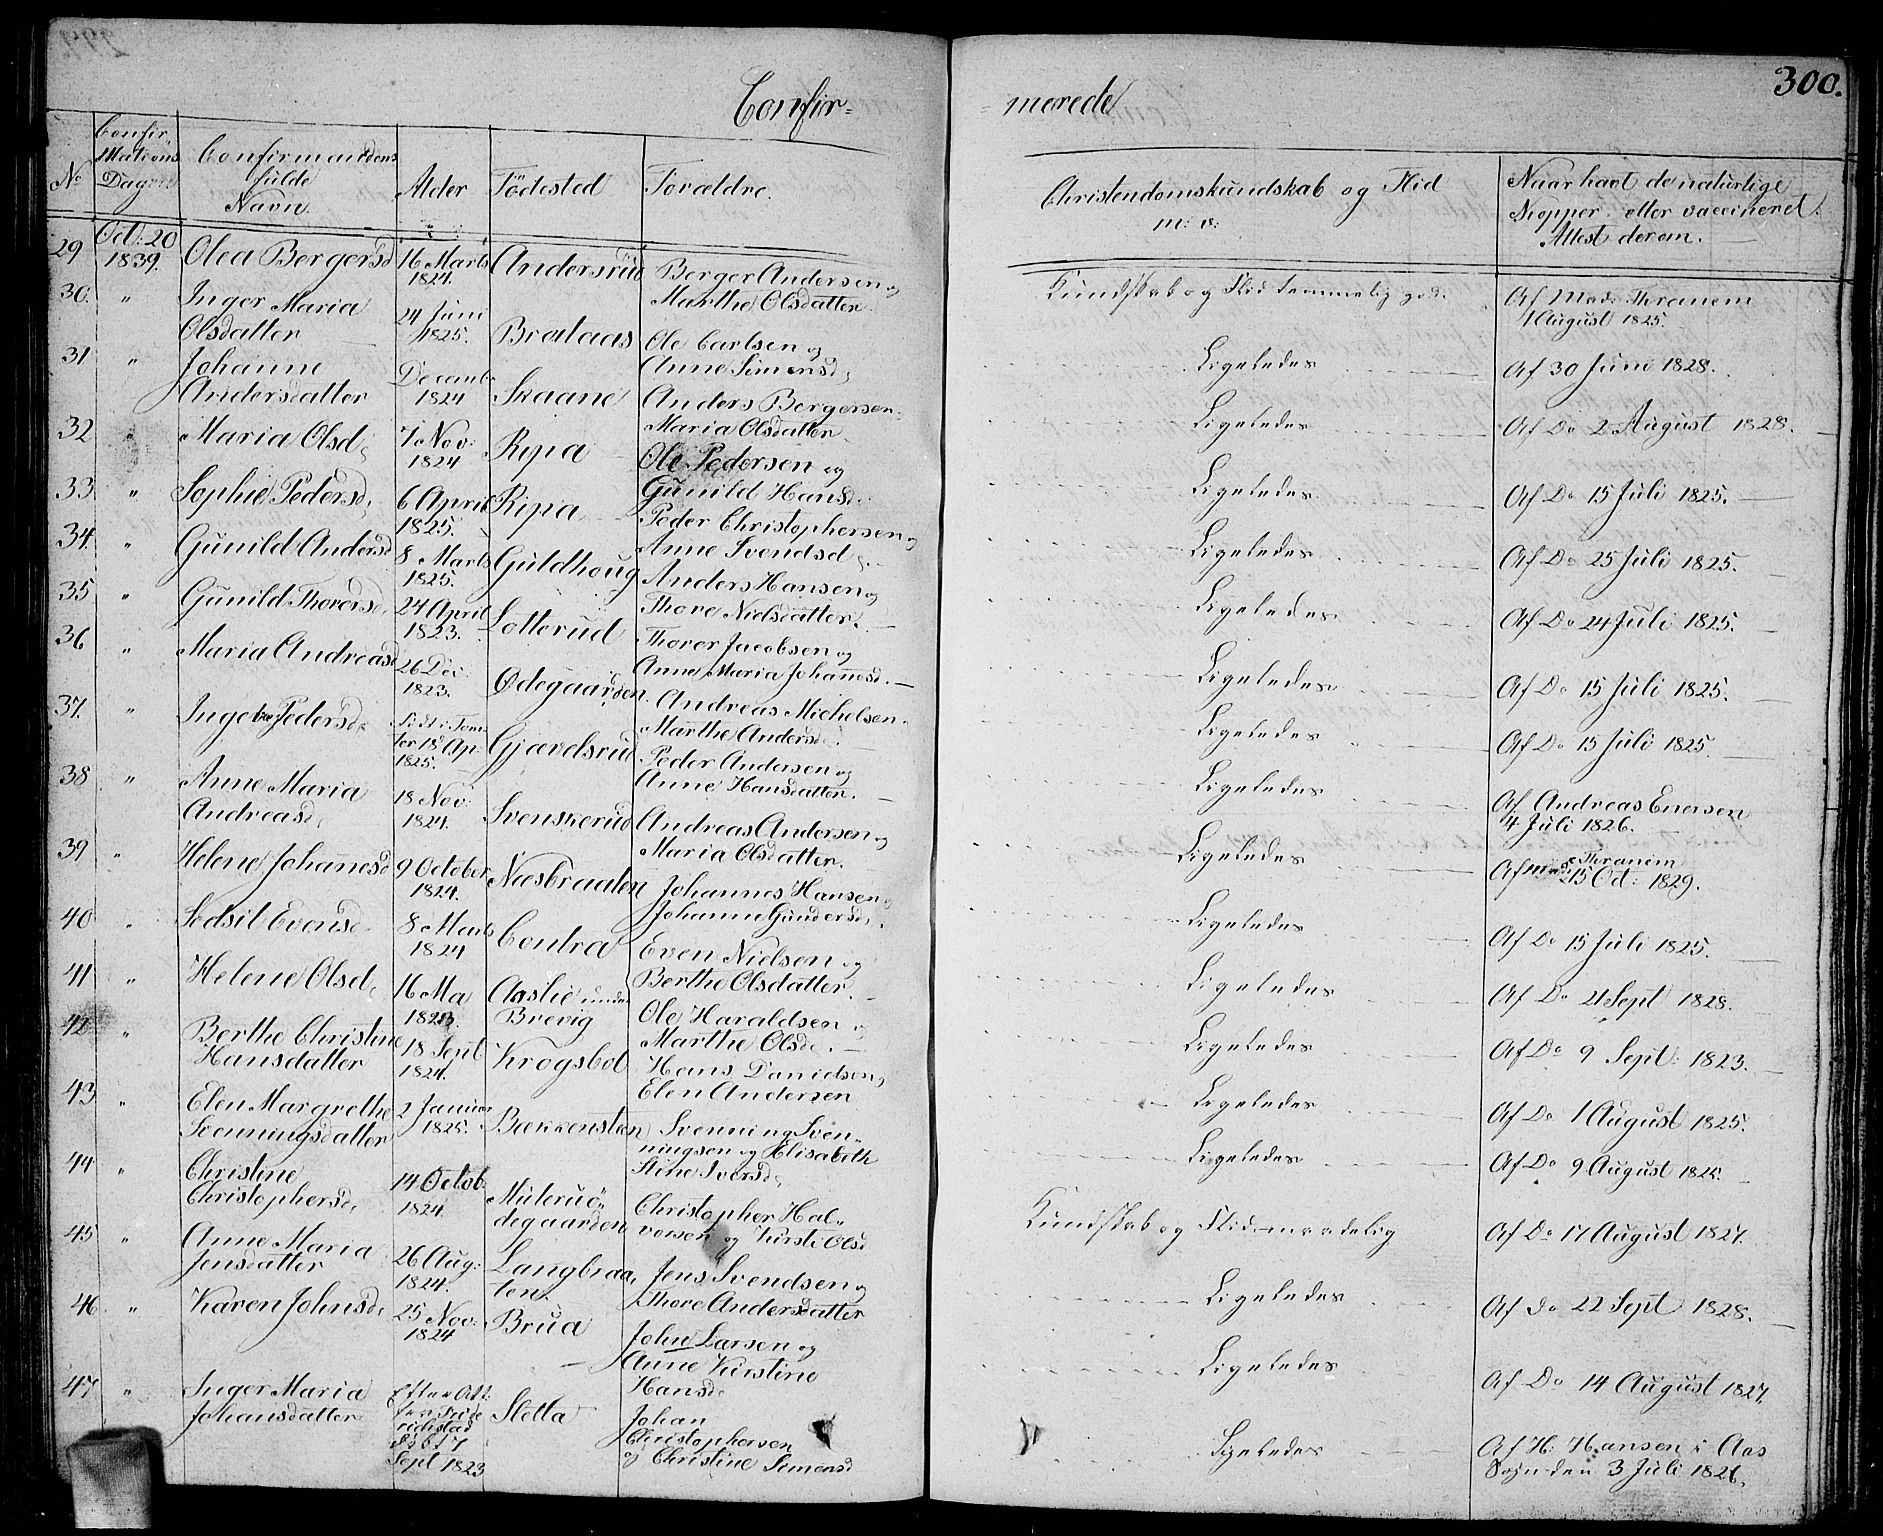 Confir=
=merede
300.
No
Confir
Mations
Dagen
Confirmandens
fulde
Navn.
Alder
Födested
Forældre.
Christendomskundskab og Flid
m: v:
Naar havt de naturlige
Kopper eller vaccineret.
Attest derom.
29 Oct: 20 1839. Olea Bergersd 16 Marts 1824. Andersrud Berger Andersen og Marthe Olsdatter. Kundskab og Flid temmelig god. Af Mad: Thranem 1 August 1825.
30. " Inger Maria Olsdatter 24 Juni 1825. Brataas Ole Carlsen og Anne Simensd, Ligeledes Af 30 Juni 1828.
31 " Johanne Andersdatter Decemb 1824 Skaane Anders Bergersen Maria Olsdatter. Ligeledes Af Do 2 August 1828.
32 " Maria Olsd, 7 Nov: 1824 Ripa Ole Pedersen og Gunild Hansd. Ligeledes Af Do 15 Juli 1825.
33 " Sophie Pedersd, 6 April 1825. Ripa Peder Christophersen og Anne Svendsd. Ligeledes Af Do 25 Juli 1825.
34. " Gunild Andersd 8 Marts 1825. Guldhoug Anders Hansen og Thore Nielsdatter. Ligeledes Af Do 24 Juli 1825.
35 " Gunild Thorersd, 24 April 1823. Lotterud Thorer Jacobsen og Anne Maria Johannesd. Ligeledes Af Do 15 Juli 1825.
36 " Maria Andreasd 26 Dec 1823. Ødegaarden Andreas Michelsen Marthe Andersd. Ligeledes Af Do 15 Juli 1825.
37. " Ingebor Pedersd. 18 Ap: 1825. Gjævelsrud Peder Andersen og Anne Hansdatter. Ligeledes Af Andreas Enersen 4 Juli 1826.
38 " Anne Maria Andreasd, 18 Nov: 1824. Svenskerud Andreas Andersen og Maria Olsdatter. Ligeledes Af Mad Thranem 15 Oct: 1829.
39 " Helene Johannesd 9 October 1824. Næsbraaten Johannes Hansen og Johanne Gundersd. Ligeledes Af Do 15 Juli 1825.
40 " Sedsil Evensd. 8 Marts 1824 Contra Even Nielsen og Berthe Olsdatter. Ligeledes Af Do 21 Sept 1828.
41 " Helene Olsd, 16 Ma 1823. Aaslie under Brevig Ole Haraldsen og Marthe Olsd. Ligeledes Af Do 9 Sept: 1823.
42 " Berthe Christine Hansdatter 18 Sept 1824. Krogsbøl Hans Danielsen og Elen Andersen Ligeledes Af Do 1 August 1825.
43 " Elen Margrethe Svenningsdatter 2 Januar 1825. Bækkensten Svenning Svenningsen og Elisabeth Stine Iversd, Ligeledes Af Do 9 August 1825.
44 " Christine Christophersd, 14 Octob: 1824. Muleruödegaarden Christopher Halvorsen og Kirsti Olsd Kundskab og Flid maadelig Af Do 17 August 1827.
45 " Anne Maria Jensdatter 26 Aug: 1824. Langbraaten Jens Svendsen og Thore Andersdatter Ligeledes Af Do 22 Sept 1828.
46 " Karen Johnsd, 25 Nov: 1824 Brua John Larsen og Anne Kirstine Hansd. Ligeledes Af Do 14 August 1827.
47 " Inger Maria Johansdatter 7 Sept 1823 Sletta Johan Christophersen og Christine Simensd Ligeledes Af H: Hansen i Aas Sogn den 3 Juli 1826.